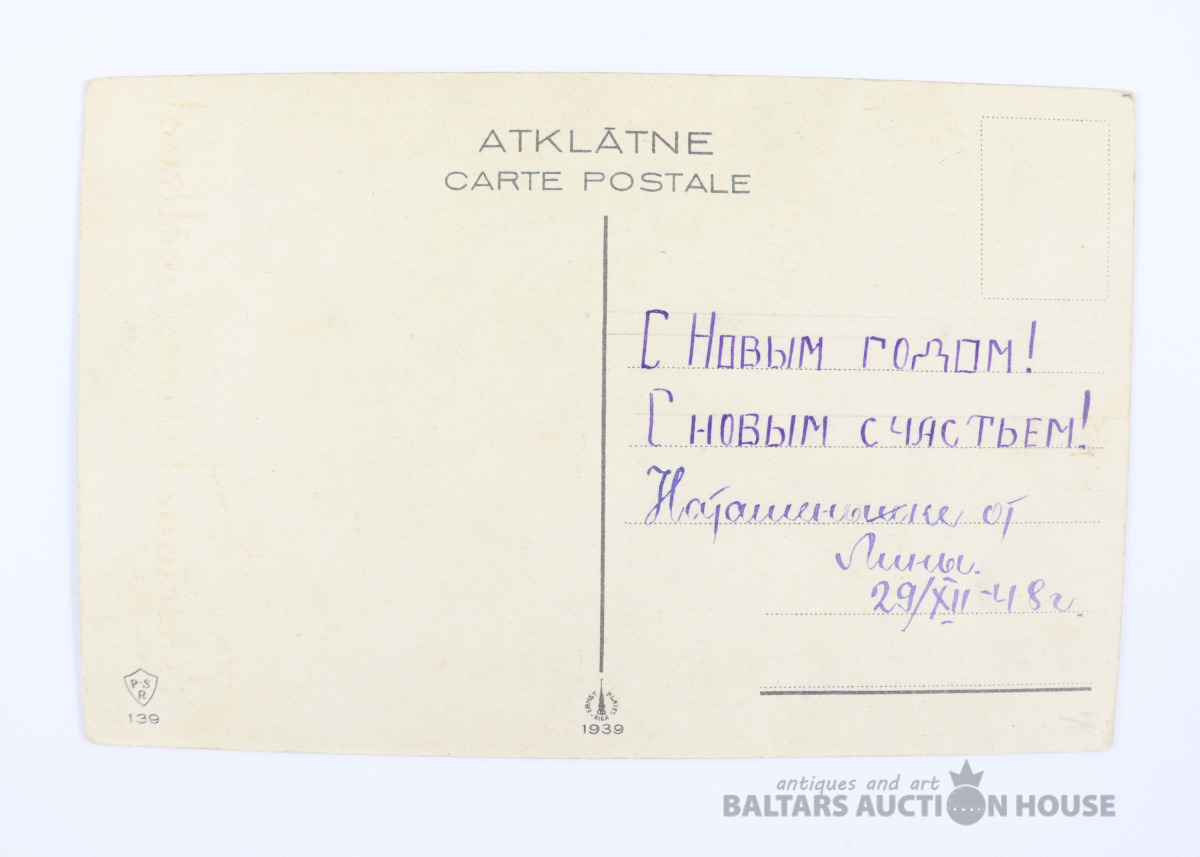 ATKLĀTNE
CARTE POSTALE
С Новым годом!
С новым счастьем!
Наташеньке от
Лины.
29/XII-48г.
P-S
R
139
RIGA
1939
antiques and art
BALTARS AUCTION HOUSE